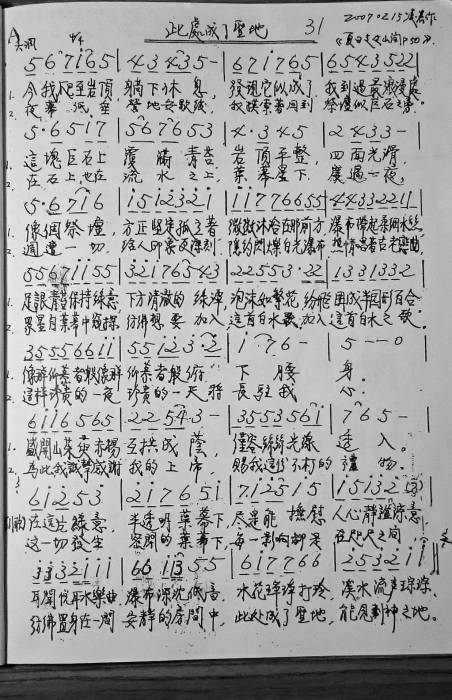 此處成了聖地 31 2007.02.15
A大調 4/4 《夏日走過山間》P50
5 6 7 1 6 5 4 3 4 3 5 - 6 7 1 7 6 5 6 5 4 3 5 2 2
1. 今我爬至岩頂 躺下休息, 發現它似成了 我到過最浪漫處
2. 夜幕低垂 營地安歇後, 我摸索著回到 祭壇似巨石之旁
5 · 6 5 1 7 5 6 7 6 5 3 4 · 3 4 5 2 4 3 3 -
1. 這塊巨石上 覆滿青苔 岩頂平整, 四面光滑
2. 在石上也在 流水之上, 葉幕星下 度過一夜,
5 · 6 7 1 6 1 5 1 2 3 2 1 1 1 7 7 6 6 5 5 4 4 3 3 2 2 1 1
1. 像個祭壇, 方正堅柴孤立著 微微沐浴在那前方 瀑布
2. 週遭一切, 給人印象更深刻 隱約閃爍白光瀑布 熱情唱著古老戀曲,
5 5 6 7 1 1 5 5 3 2 1 7 6 5 4 3 2 2 5 5 3 · 2 2 1 3 3 1 3 3 2
1. 足讓青苔保持綠意 下方清澈的綠潭, 泡沫如繁花
2. 眾星自葉幕中窺探 彷彿想要加入 這首白水歌 加入這首白水之歌.
3 5 5 5 6 6 1 1 5 5 1 2 3 2 1 · 7 6 - 5 - - 0
1. 下腰 身.
2. 這樣珍貴的一夜 珍貴的一天將 長駐我 心.
6 1 1 6 5 6 5 2 2 5 4 3 - 3 5 5 3 5 6 1 7 6 5 -
1. 盛開山茱萸赤楊 互拱成蔭, 僅容絲絲光線 透入.
2. 為此我誠摯感謝 我的上帝, 賜我這份不朽的 禮物.
6 1 2 5 3 2 1 7 6 5 1 7 1 2 5 1 5 1 5 1 3 2
副歌 在這片綠意 半透明葉幕下, 尽是能撫慰 人心靜謐綠意
這一切發生 密閉的葉幕下, 每一刹那都是 在咫尺之間,
3 3 3 2 1 1 1 6 6 1 3 5 5 6 1 7 7 6 6 2 5 3 2 1 1
耳聞悅耳水樂曲, 瀑布深沈低音 水花琤琤打玲, 溪水流声琮琮,
彷彿置身在一間 安靜的房間中, 此处成了聖地, 能見到神之地.